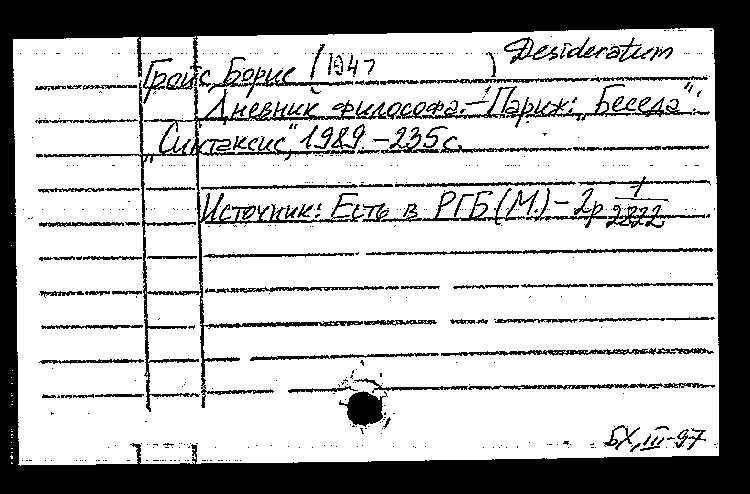 Desideratum
Гройс, Борис (1947 )
Дневник философа. – Париж: „Беседа":
„Синтаксис", 1989. – 235 с.
Источник: Есть в РГБ (М.) – 2р 1/2822
БХ, III-97